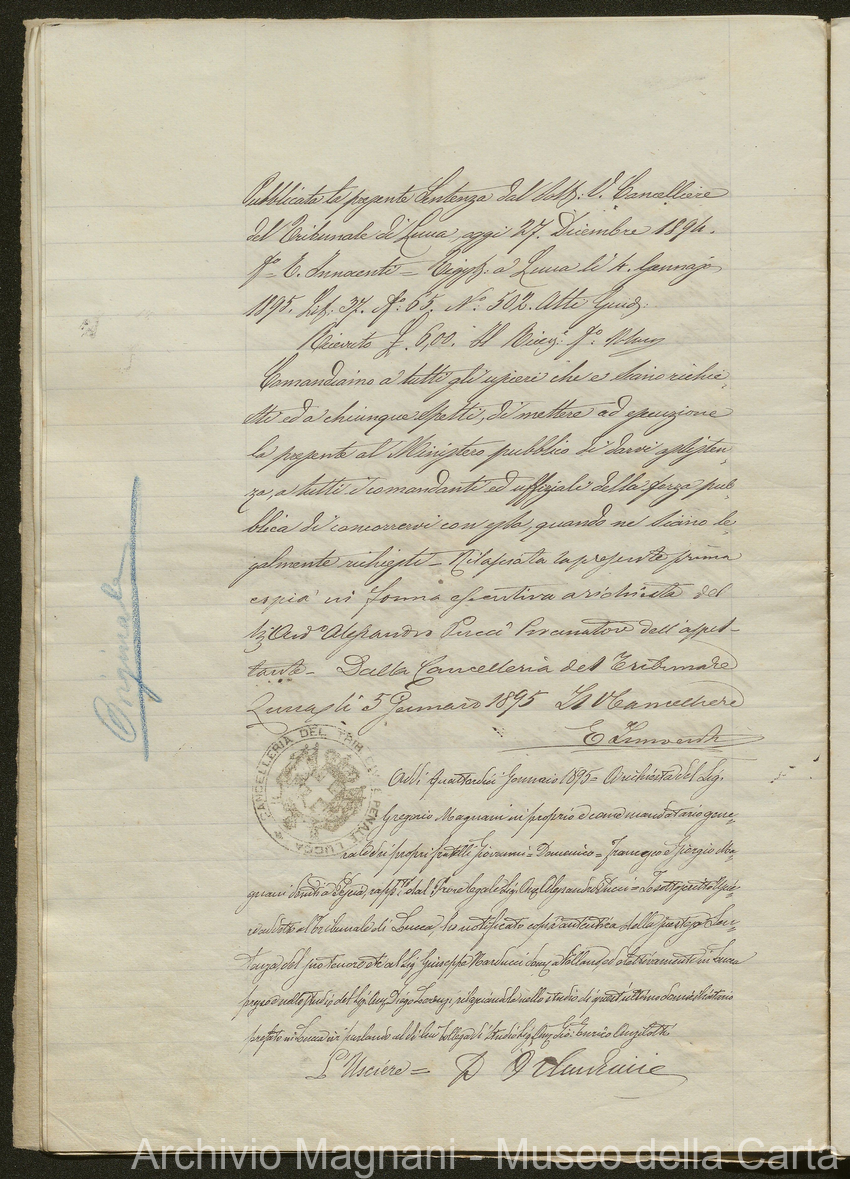 Pubblicata la presente Sentenza dal sott: V. Cancelliere
del Tribunale di Lucca, oggi 27. Dicembre 1894.
Fo= E. Innocenti = Regist: a Lucca li 4. Gennajo
1895. Lib: 37. Fo: 65. No: 502. Atti Giud:
Ricevuto £ 6,00. Il Ricev: Fo:
Comandiamo a tutti gli uscieri che e siano richie-
sti ed a chiunque spetti, di mettere ad esecuzione
la presente al Ministero pubblico di darvi assisten-
za, a tutti i comandanti ed uffiziali della forza pub-
blica di concorrervi con essa, quando ne siano le-
galmente richiesti = Rilasciata la presente prima
copia in forma esecutiva a richiesta del
Sig Avvo Alessandro Pucci Procuratore dell'appel-
lante = Dalla Cancelleria del Tribunale
Lucca li 5 Gennaio 1895 Il VCancelliere
E Innocenti
CANCELLERIA DEL TRIB. CIV. E PENALE LUCCA
Originale
Addi quattordici Gennaio 1895 = A richiesta del Sig.
Gregorio Magnani in proprio e come mandatario gene-
rale dei propri fratelli Giovanni = Domenico = Francesco e Giorgio Ma-
gnani dom.ti a Pescia, rapp.ti dal Proc.e legale Sig. Avv. Alessandro Pucci = Io sottoscritto Uscie-
re addetto al Tribunale di Lucca, ho notificato copia autentica della Sen-
tenza del al Sig. Giuseppe Narducci dom. a ed elettivamente in Lucca
presso e nello studio del Sig. Avv. Diego Lorenzi, rilasciandola nello studio di quest'ultimo domiciliatario
prefato in Lucca ivi parlando al di lui collega di studio Sig. Avv. Enrico Angelotti
L'Usciere =
Archivio Magnani - Museo della Carta